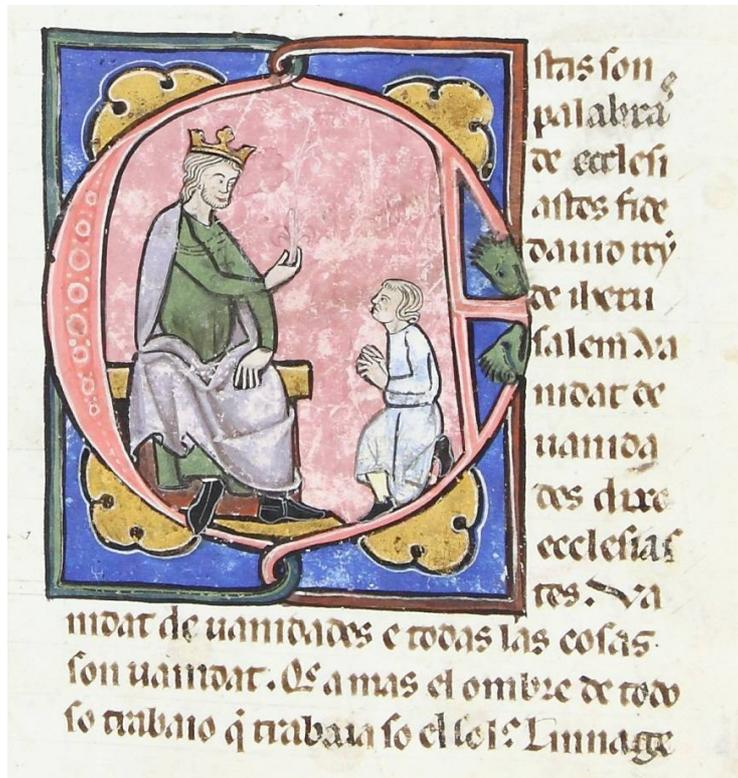 Estas son
palabras
de eccłesi
astes fide
dauid rey
de iheru
salem Va
nidat de
uanida
des dixo
ecclesias
tes. Va
nidat de uanidades e todas las cosas
son uanidat. Q̃ a mas el ombre de todo
so trabaio q̃ trabaia so el sol? Linnage